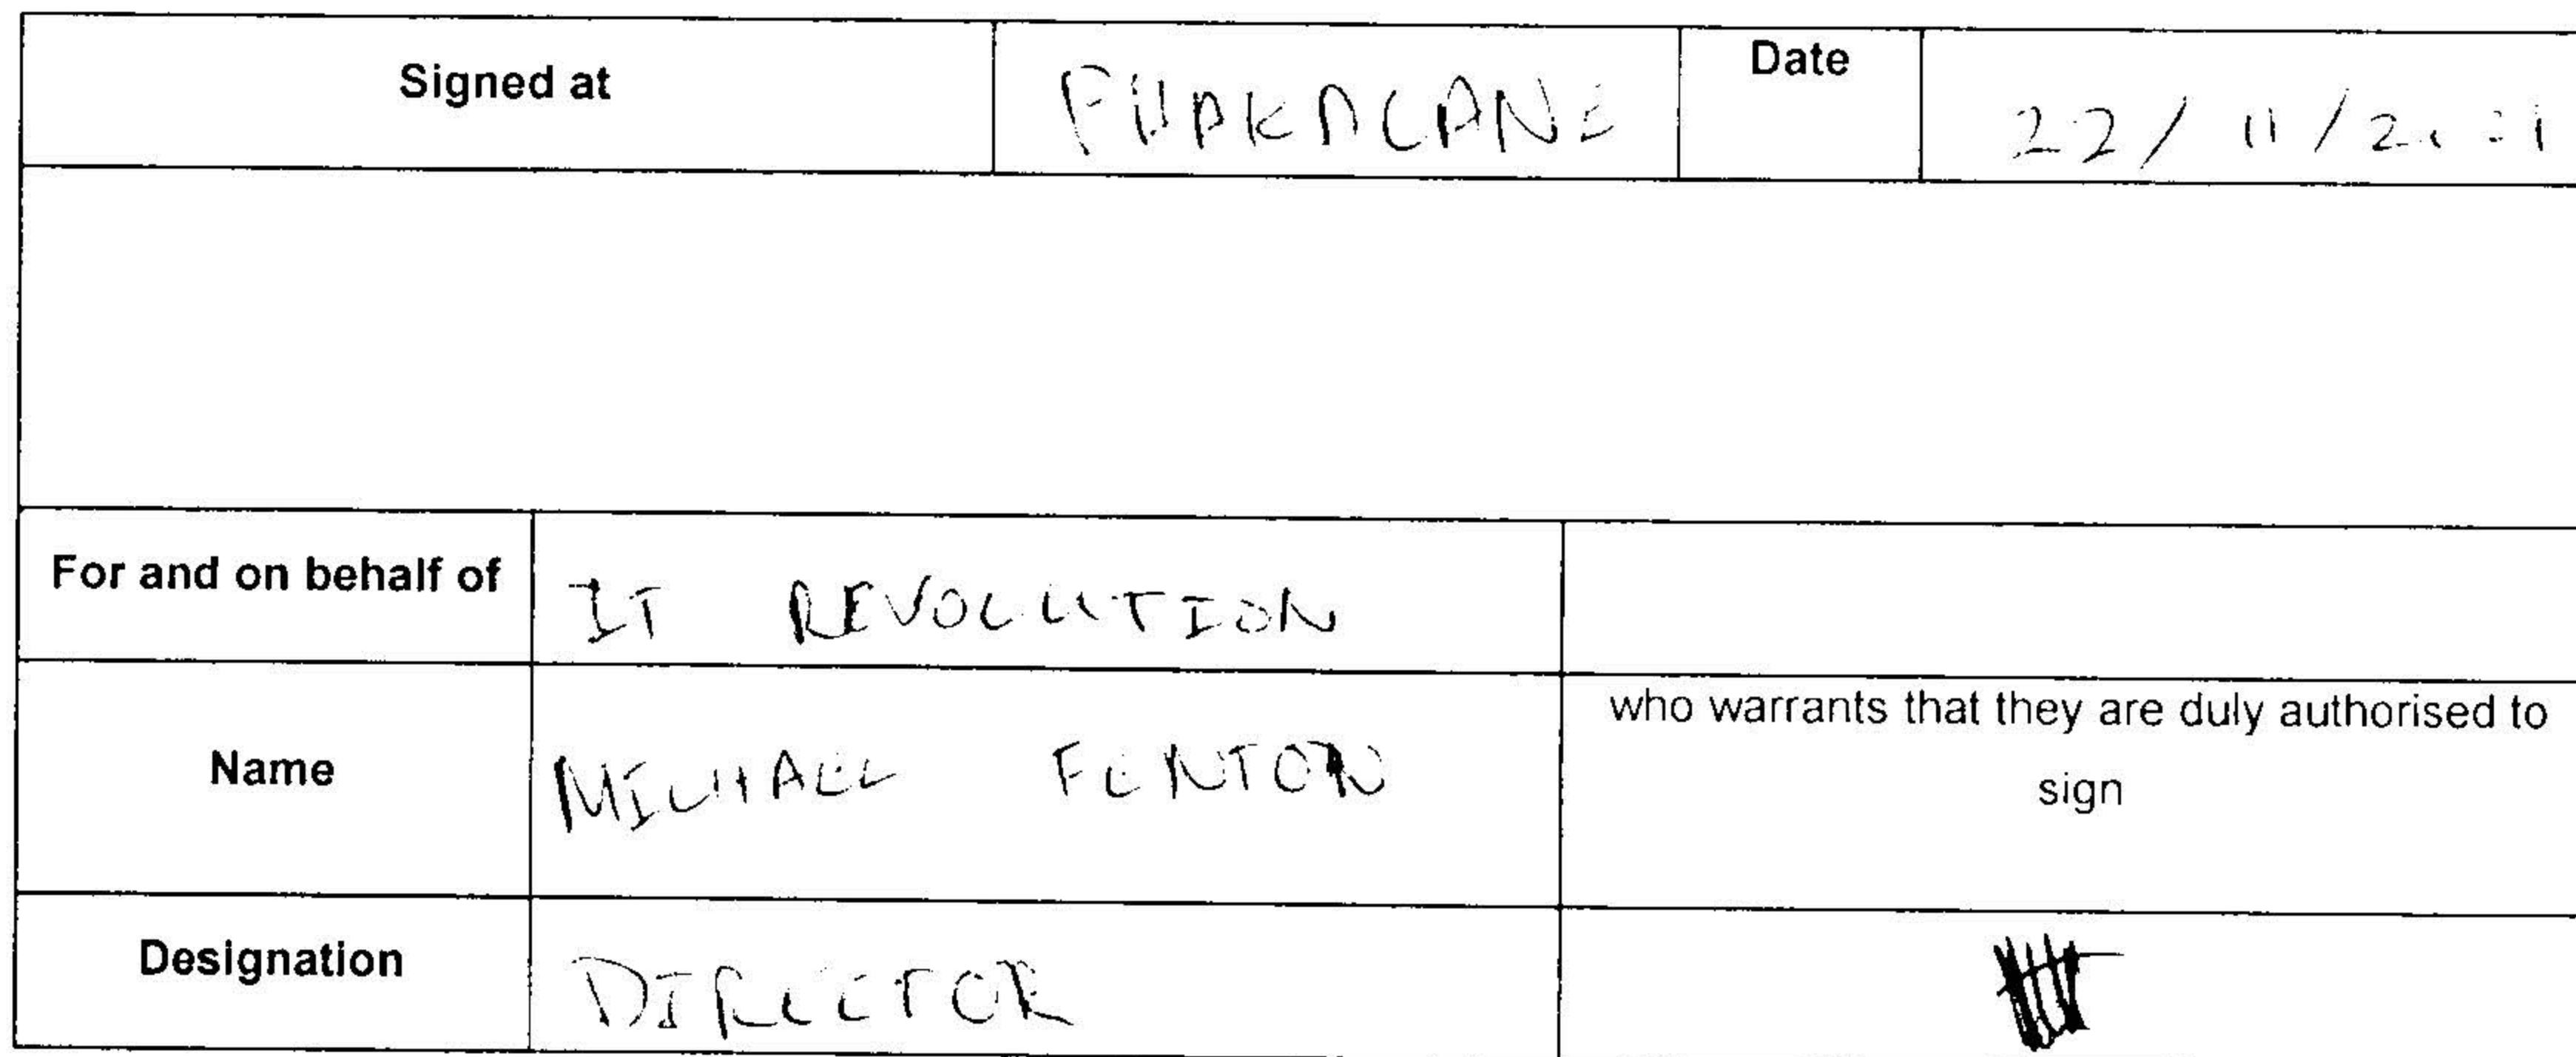 Signed at
Date
22/11/2021
For and on behalf of
IT REVOLUTION
Name
MICHAEL FENTON
who warrants that they are duly authorised to
sign
Designation
DIRECTOR